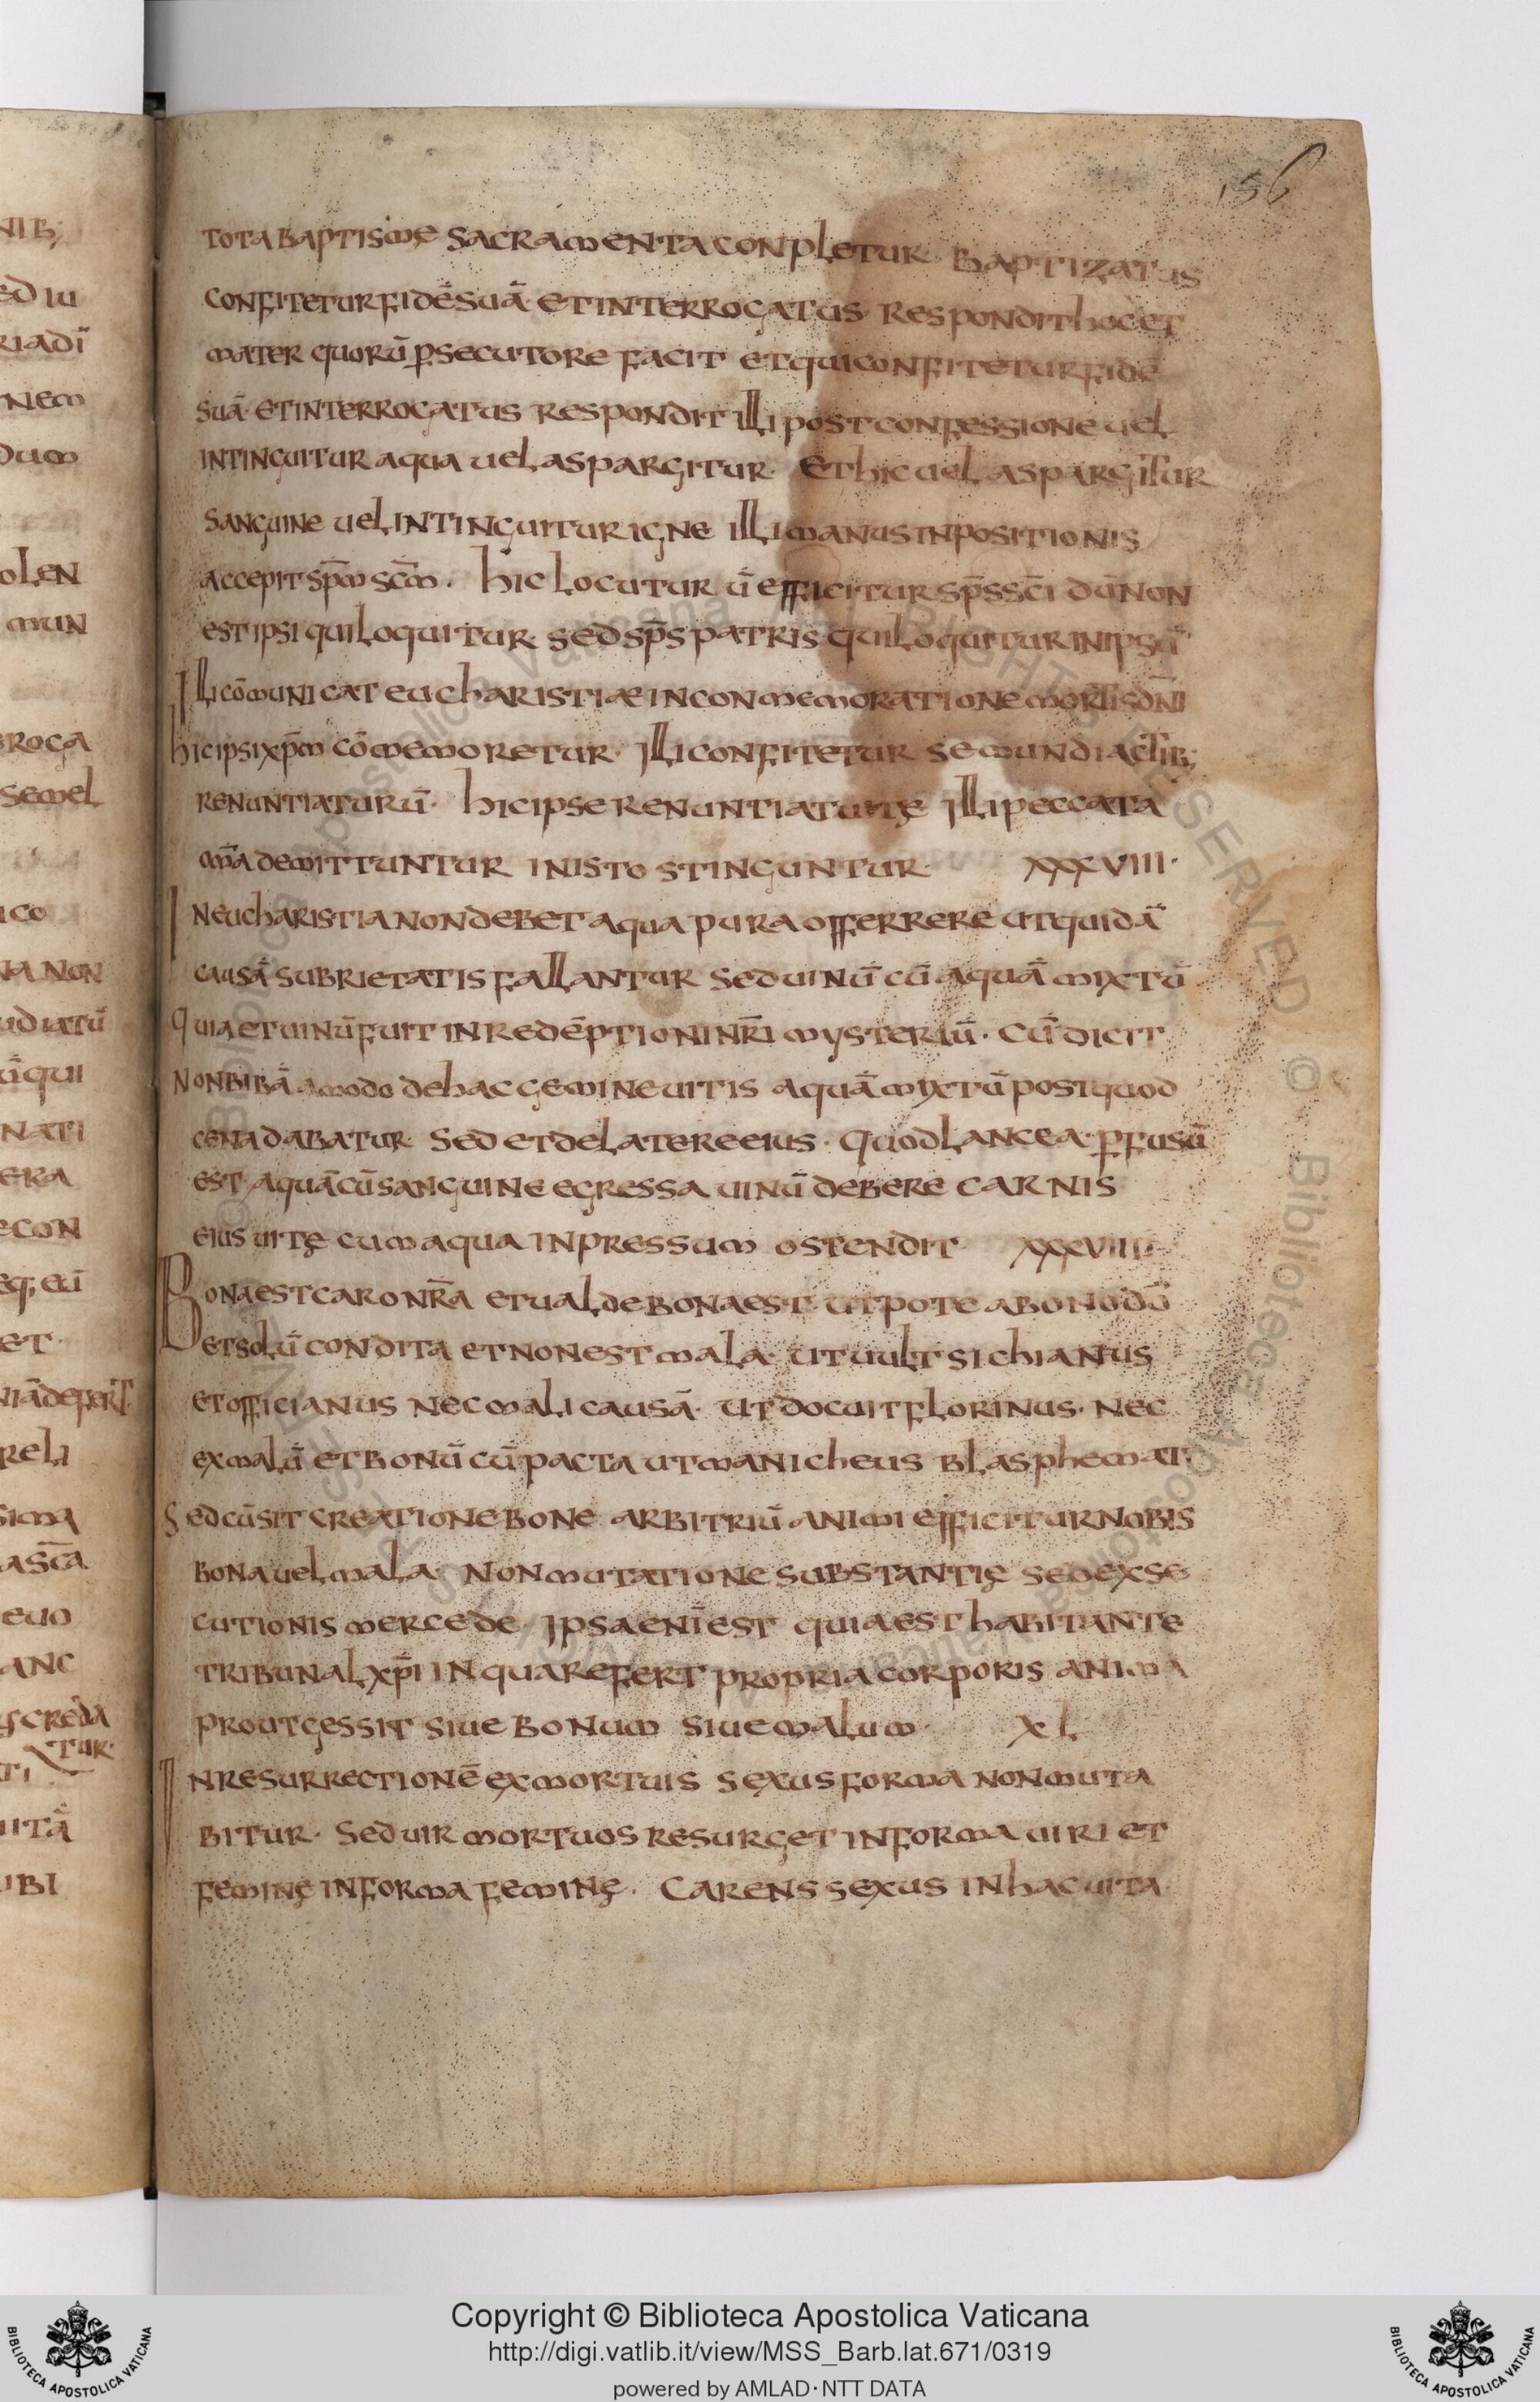 156
tota baptismę sacramenta conpletur. Baptizatus
confitetur fidē suā. et interrogatus. Respondit hoc et
mater quorū p̄secutore facit et qui confitetur fidē
suā. et interrogatus respondit illi post confessione uel
intinguitur aqua uel aspargitur. Et hic uel aspargitur
sanguine uel intinguitur igne illi manus inpositionis
accepit sp̄m sc̄m. hic locutur ū efficitur sp̄s sc̄i dū non
est ipsi qui loquitur. sed sp̄s patris qui loquitur in ipsū
Illi cōmunicat eucharistiæ in conmemoratione mortis dn̄i
hic ipsi xp̄m cōmemoretur. Illi confitetur se mundi actib;
renuntiaturū. hic ipse renuntiat uitę Illi peccata
om̄a demittuntur in isto stinguntur. xxxviii.
In eucharistia non debet aqua pura offerrere ut quidā
causā subrietatis fallantur sed uinū cū aquā mixtū
quia et uinū fuit in redēptioni nr̄i mysteriū. cū dicit
Non bibā amodo de hac gemine uitis aquā mixtū post quod
cena dabatur. Sed et de latere eius. quod lancea p̄fusū
est. aquā cū sanguine egressa uinū debere carnis
eius uitę cum aqua inpressum ostendit. xxxviiii.
Bona est caro nr̄a et ualde bona est. ut pote a bono dō
et solū condita et non est mala. ut uult sichianus
et officianus nec mali causā. ut docuit florinus. nec
ex malū et bonū cū pacta ut manicheus blasphemat.
Sed cū sit creatione bone arbitriū animi efficitur nobis
bona uel mala. Non mutatione substantię sed exse
cutionis mercede. Ipsa enī est quia est habitante
tribunal xp̄i in qua refert propria corporis anima
prout gessit siue bonum siue malum. xl
In resurrectionē ex mortuis sexus forma non muta
bitur. Sed uir mortuos resurget in forma uiri et
feminę in forma feminę. Carens sexus in hac uita.
Copyright © Biblioteca Apostolica Vaticana
http://digi.vatlib.it/view/MSS_Barb.lat.671/0319
powered by AMLAD·NTT DATA
BIBLIOTECA APOSTOLICA VATICANA
BIBLIOTECA APOSTOLICA VATICANA